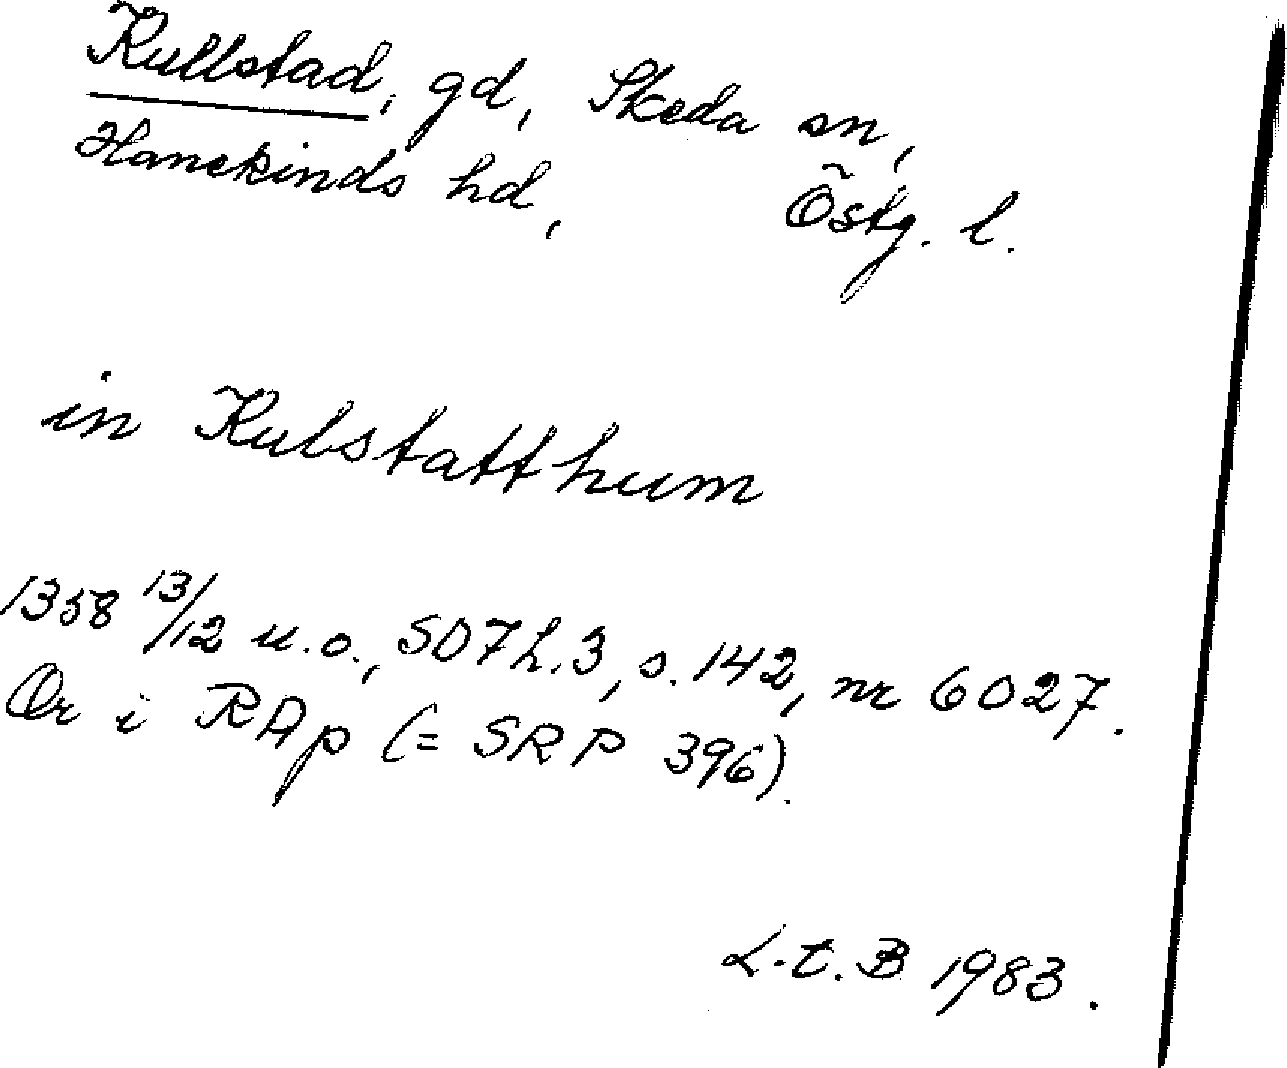 Kullstad, gd, Skeda sn,
Hanekinds hd, Östg. l.
in Kulstatthum
1358 13/12 u.o., SD7h.3, s.142, nr 6027.
Or i RAp (= SRP 396).
L.t.B 1983.